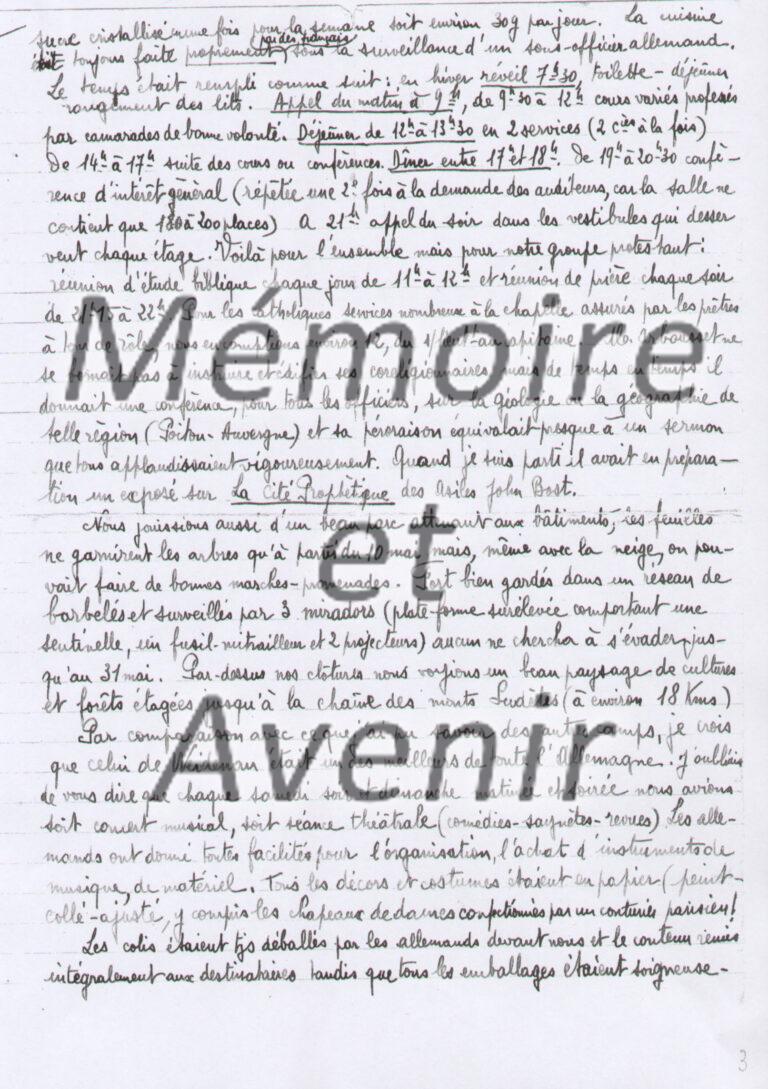 sucre cristallisé une fois pour la semaine soit environ 30g par jour. La cuisine
par des français
était toujours faite proprement, sous la surveillance d'un sous-officier allemand.
Le temps était rempli comme suit : en hiver réveil 7h30, toilette - déjeuner
rangement des lits. Appel du matin à 9h, de 9h30 à 12h cours variés professés
par camarades de bonne volonté. Déjeuner de 12h à 13h30 en 2 services (2 Cies à la fois)
De 14h à 17h suite des cours ou conférences. Dîner entre 17h et 18h. De 19h à 20h30 confé-
rence d'intérêt général (répétée une 2e fois à la demande des auditeurs, car la salle ne
contient que 180 à 200 places) A 21h appel du soir dans les vestibules qui desser
vent chaque étage. Voilà pour l'ensemble mais pour notre groupe protestant :
réunion d'étude biblique chaque jour de 11h à 12h et réunion de prière chaque soir
de 21h15 à 22h. Pour les catholiques services nombreux à la chapelle assurés par les prêtres
à tour de rôle, nous en comptions environ du s/lieut. au capitaine. ne
se bornait pas à instruire et édifier ses coreligionnaires mais de temps en temps il
donnait une conférence, pour tous les officiers, sur la géologie ou la géographie de
telle région (Poitou-Auvergne) et sa péroraison équivalait presque à un sermon
que tous applaudissaient vigoureusement. Quand je suis parti il avait en prépara-
tion un exposé sur La Cité Prophétique des Asiles John Bost.
Nous jouissions aussi d'un beau parc attenant aux bâtiments, les feuilles
ne garnirent les arbres qu'à partir du 10 mai mais, même avec la neige, on pou-
vait faire de bonnes marches-promenades. Fort bien gardés dans un réseau de
barbelés et surveillés par 3 miradors (plate-forme surélevée comportant une
sentinelle, un fusil-mitrailleur et 2 projecteurs) aucun ne chercher à s'évader jus-
qu'au 31 mai. Par-dessus nos clôtures nous voyions un beau paysage de cultures
et forêts étagées jusqu'à la chaîne des monts Sudètes (à environ 18 Kms)
Par comparaison avec ce que j'ai pu savoir des autres camps, je crois
que celui de Weidenau était un des meilleurs de toute l'Allemagne. J'oubliais
de vous dire que chaque samedi soir et dimanche matinée et soirée nous avions
soit concert musical, soit séance théâtrale (comédies-saynètes-revues) Les alle-
mands ont donné toutes facilités pour l'organisation, l'achat d'instruments de
musique, de matériel. Tous les décors et costumes étaient en papier (peint-
collé-ajusté, y compris les chapeaux de dames confectionnés par un couturier parisien !
Les colis étaient tjs déballés par les allemands devant nous et le contenu remis
intégralement aux destinataires tandis que tous les emballages étaient soigneuse-
3
Mémoire
et
Avenir